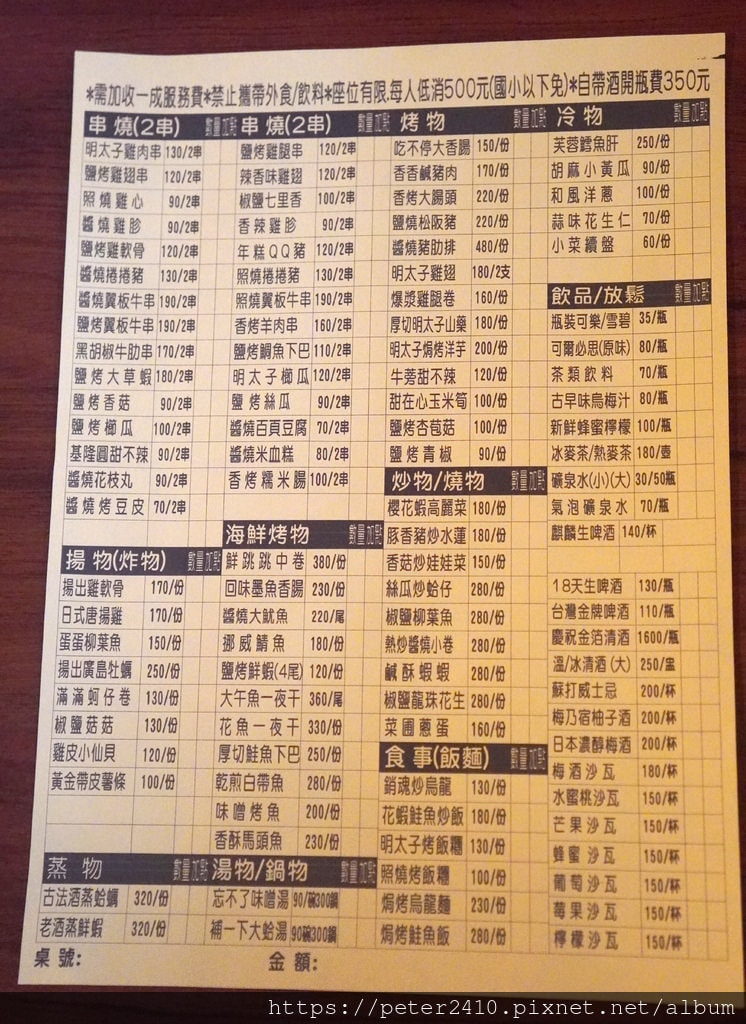 *需加收一成服務費*禁止攜帶外食/飲料*座位有限.每人低消500元(國小以下免)*自帶酒開瓶費350元
串燒(2串) 數量 加點
明太子雞肉串 130/2串
鹽烤雞翅串 120/2串
照燒雞心 90/2串
醬燒雞胗 90/2串
鹽烤雞軟骨 120/2串
醬燒捲捲豬 130/2串
醬燒翼板牛串 190/2串
鹽烤翼板牛串 190/2串
黑胡椒牛肋串 170/2串
鹽烤大草蝦 180/2串
鹽烤香菇 90/2串
鹽烤櫛瓜 100/2串
基隆圓甜不辣 90/2串
醬燒花枝丸 90/2串
醬燒烤豆皮 70/2串
揚物(炸物) 數量 加點
揚出雞軟骨 170/份
日式唐揚雞 170/份
蛋蛋柳葉魚 150/份
揚出廣島牡蠣 250/份
滿滿蚵仔卷 130/份
椒鹽菇菇 130/份
雞皮小仙貝 120/份
黃金帶皮薯條 100/份
蒸物 數量 加點
古法酒蒸蛤蠣 320/份
老酒蒸鮮蝦 320/份
桌號:
串燒(2串) 數量 加點
鹽烤雞腿串 120/2串
辣香味雞翅 120/2串
椒鹽七里香 100/2串
香辣雞胗 90/2串
年糕QQ豬 120/2串
照燒捲捲豬 130/2串
照燒翼板牛串 190/2串
香烤羊肉串 160/2串
鹽燒鯛魚下巴 110/2串
明太子櫛瓜 120/2串
鹽烤絲瓜 90/2串
醬燒百頁豆腐 70/2串
醬燒米血糕 80/2串
香烤糯米腸 100/2串
海鮮烤物 數量 加點
鮮跳跳中卷 380/份
回味墨魚香腸 230/份
醬燒大魷魚 220/尾
挪威鯖魚 180/份
鹽烤鮮蝦(4尾) 120/份
大午魚一夜干 360/尾
花魚一夜干 330/份
厚切鮭魚下巴 250/份
乾煎白帶魚 280/份
味噌烤魚 200/份
香酥馬頭魚 230/份
湯物/鍋物 數量 加點
忘不了味噌湯 90/碗300鍋
補一下大蛤湯 90碗300鍋
金額:
烤物 數量 加點
吃不停大香腸 150/份
香香鹹豬肉 170/份
香烤大腸頭 220/份
鹽燒松阪豬 220/份
醬燒豬肋排 480/份
明太子雞翅 180/2支
爆漿雞腿卷 160/份
厚切明太子山藥 180/份
明太子焗烤洋芋 200/份
牛蒡甜不辣 120/份
甜在心玉米筍 100/份
鹽烤杏苞菇 100/份
鹽烤青椒 90/份
炒物/燒物 數量 加點
櫻花蝦高麗菜 180/份
豚香豬炒水蓮 180/份
香菇炒娃娃菜 150/份
絲瓜炒蛤仔 280/份
椒鹽柳葉魚 280/份
熱炒醬燒小卷 280/份
鹹酥蝦蝦 280/份
椒鹽龍珠花生 280/份
菜圃蔥蛋 160/份
食事(飯麵) 數量 加點
銷魂炒烏龍 130/份
花蝦鮭魚炒飯 180/份
明太子烤飯糰 130/份
照燒烤飯糰 100/份
焗烤烏龍麵 230/份
焗烤鮭魚飯 280/份
冷物 數量 加點
芙蓉鱈魚肝 250/份
胡麻小黃瓜 90/份
和風洋蔥 100/份
蒜味花生仁 70/份
小菜續盤 60/份
飲品/放鬆 數量 加點
瓶裝可樂/雪碧 35/瓶
可爾必思(原味) 80/瓶
茶類飲料 70/瓶
古早味烏梅汁 80/瓶
新鮮蜂蜜檸檬 100/瓶
冰麥茶/熱麥茶 180/壺
礦泉水(小)(大) 30/50瓶
氣泡礦泉水 70/瓶
麒麟生啤酒 140/杯
18天生啤酒 130/瓶
台灣金牌啤酒 110/瓶
慶祝金箔清酒 1600/瓶
溫/冰清酒(大) 250/壺
蘇打威士忌 200/杯
梅乃宿柚子酒 200/杯
日本濃醇梅酒 200/杯
梅酒沙瓦 180/杯
水蜜桃沙瓦 150/杯
芒果沙瓦 150/杯
蜂蜜沙瓦 150/杯
葡萄沙瓦 150/杯
莓果沙瓦 150/杯
檸檬沙瓦 150/杯
https://peter2410.pixnet.net/album